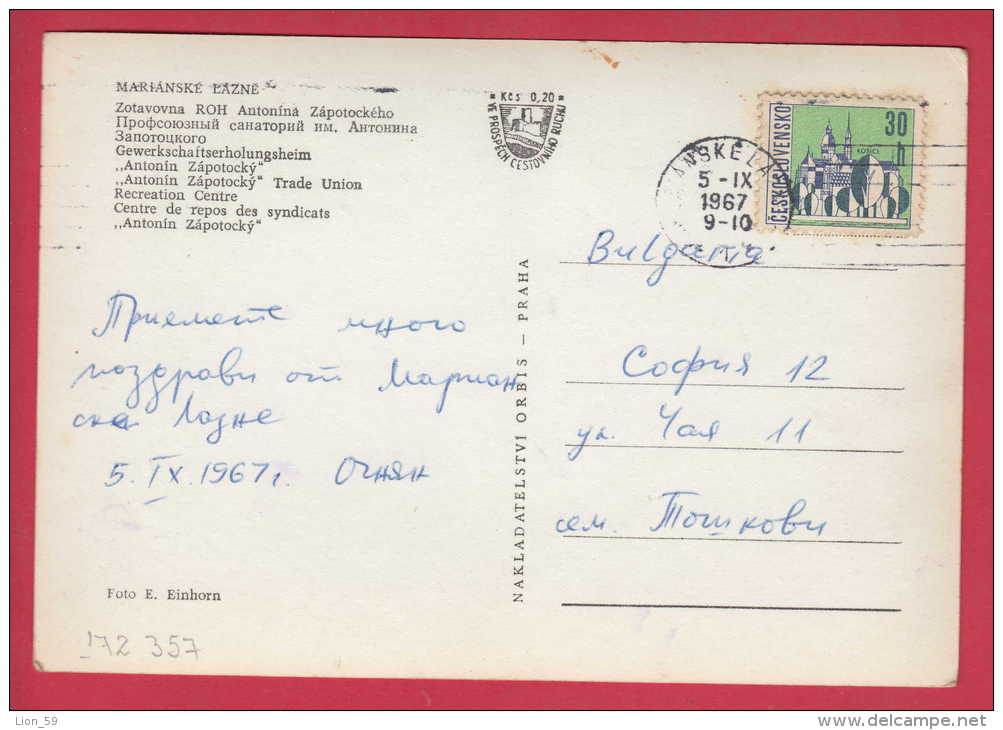 MARIÁNSKÉ LÁZNĚ
Zotavovna ROH Antonína Zápotockého
Профсоюзный санаторий им. Антонина
Запотоцкого
Gewerkschaftserholungsheim
„Antonín Zápotocký“
„Antonín Zápotocký“ Trade Union
Recreation Centre
Centre de repos des syndicats
„Antonín Zápotocký“
Kčs 0,20
VE PROSPĚCH CESTOVNÍHO RUCHU
ČESKOSLOVENSKO
30 h
KOŠICE
ÁNSKÉ LÁ
5 -IX
1967
9-10
Bulgaria
Приемете много
поздрави от Мариан
ска Лазне
5. IX. 1967 г. Огнян
NAKLADATELSTVI ORBIS — PRAHA
София 12
ул. Чая 11
сем. Тошкови
Foto E. Einhorn
172 357
Lion_59
www.delcampe.net